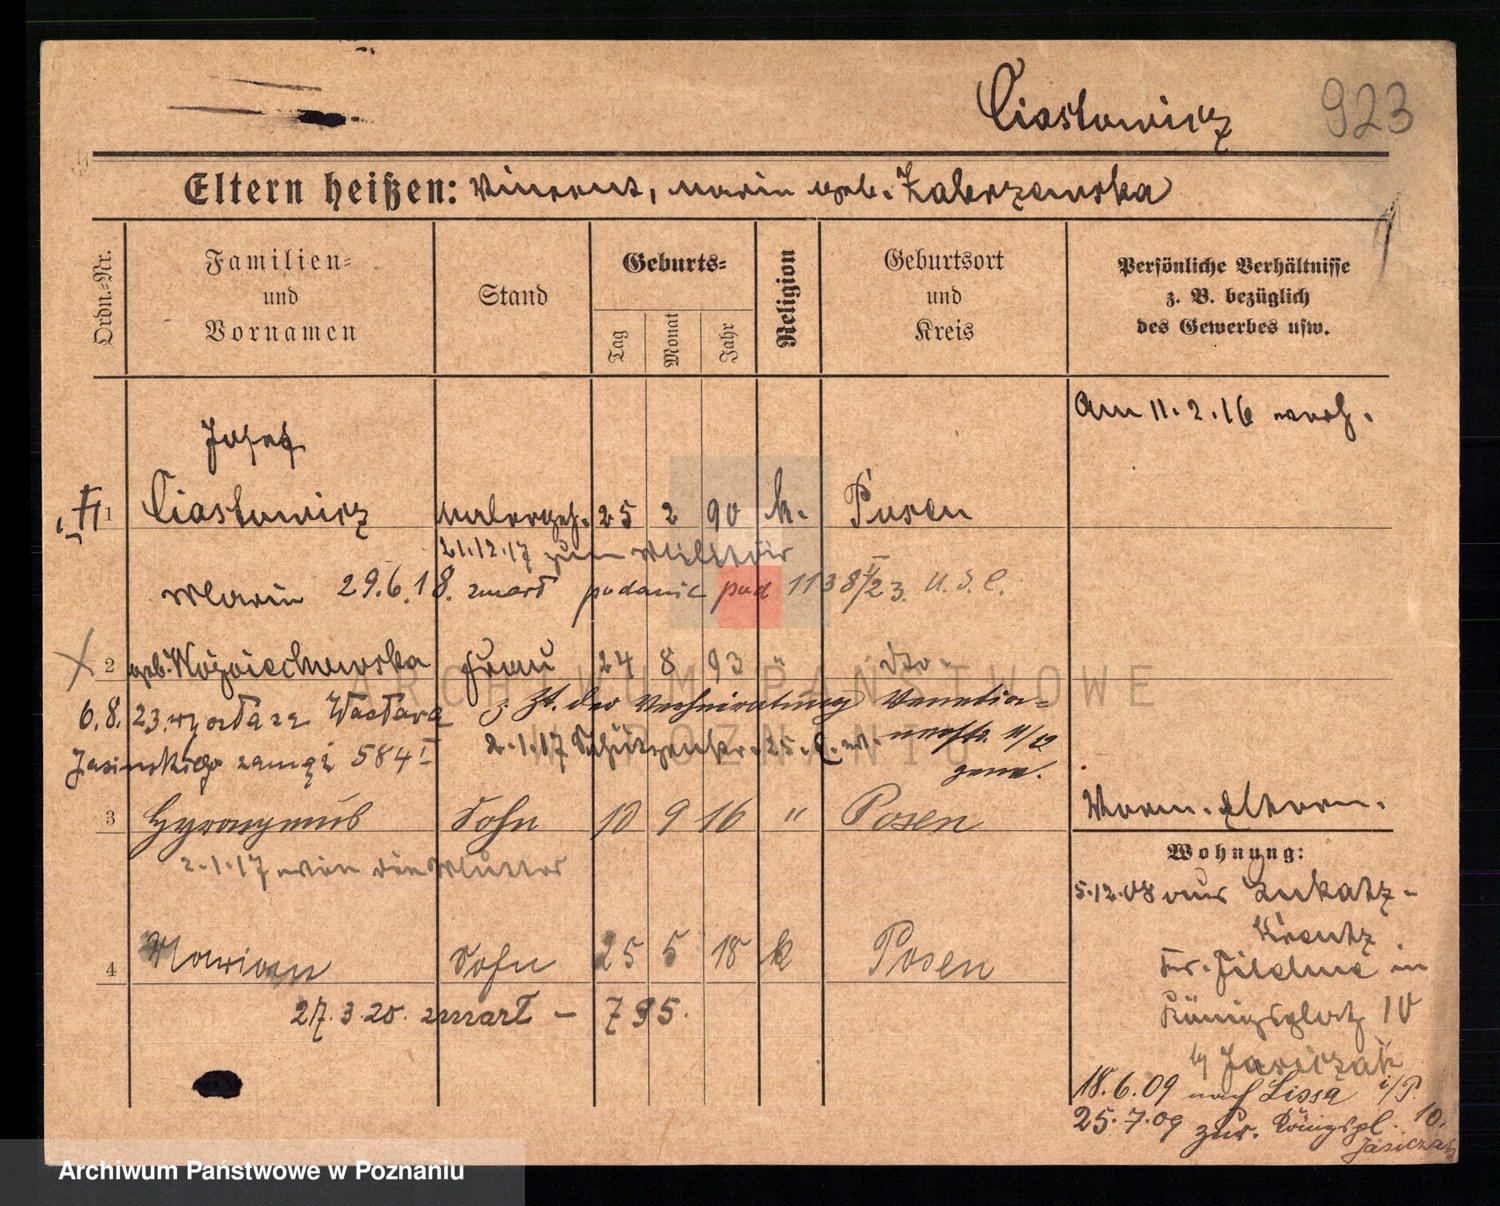 Ciastowicz 923
Eltern heißen: Vincent, Maria geb. Zakrzewska
Ordn.-Nr.
Familien- und Vornamen
Stand
Geburts-
Tag
Monat
Jahr
Religion
Geburtsort und Kreis
Persönliche Verhältnisse z. B. bezüglich des Gewerbes usw.
Am 11.2.16 verh.
Josef
1 Ciastowicz Malergeh. 25 2 90 k. Posen
21.12.17 zum Militär
Maria 29.6.18. zmarł podanie pod 1138/23. U.S.C.
2 geb. Woźniechowska Frau 24 8 93 " dto.
6.8.23. wyszła za Wacława z. Zt. der Verheiratung Venetia-
Jasinskiego zamąż 584 I 2.1.17 Schützenstr. 25. nerstr. 11/12
gem.
3 Hyronymus Sohn 10 9 16 " Posen
Vorm. Eltern.
2.1.17 wie die Mutter
Wohnung:
5.12.08 aus Lukatz-
Kreutz
4 Marian Sohn 25 5 18 k Posen
in
27.3.20. zmarł - 795.
Königsplatz 10
b/ Jasiczak
18.6.09 nach Lissa i/P.
25.7.09 zur. Königspl. 10.
Jasiczak
ARCHIWUM PAŃSTWOWE
W POZNANIU
Archiwum Państwowe w Poznaniu